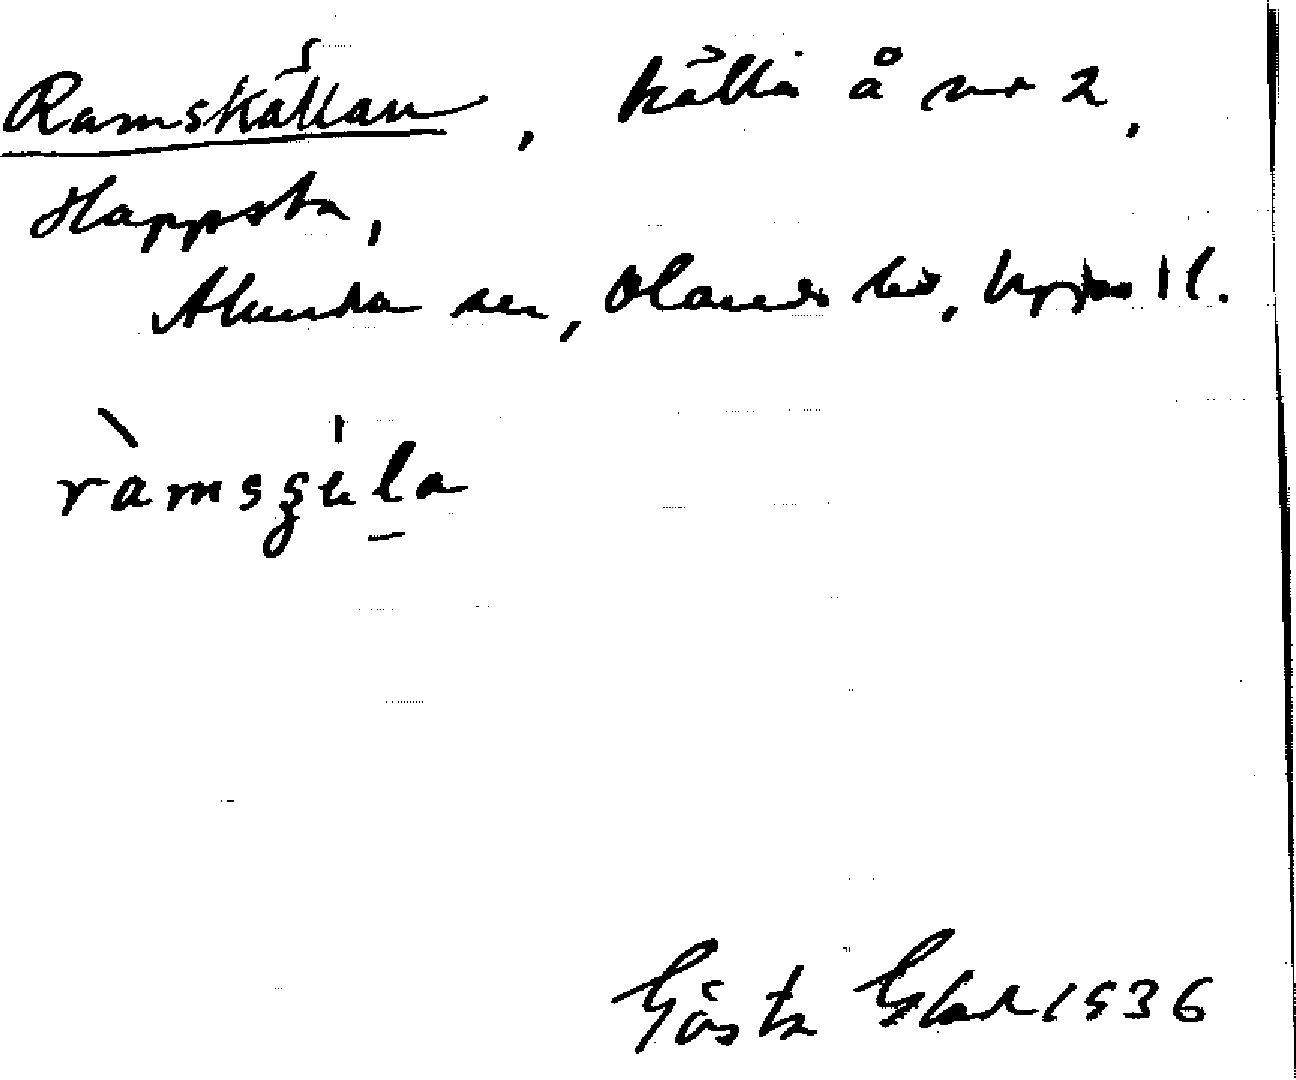 Ramskällan, källa å nr 2,
Happsta,
Alunda sn, Olands hd, Upps ll.
ramsçela
Gösta Glad 1936